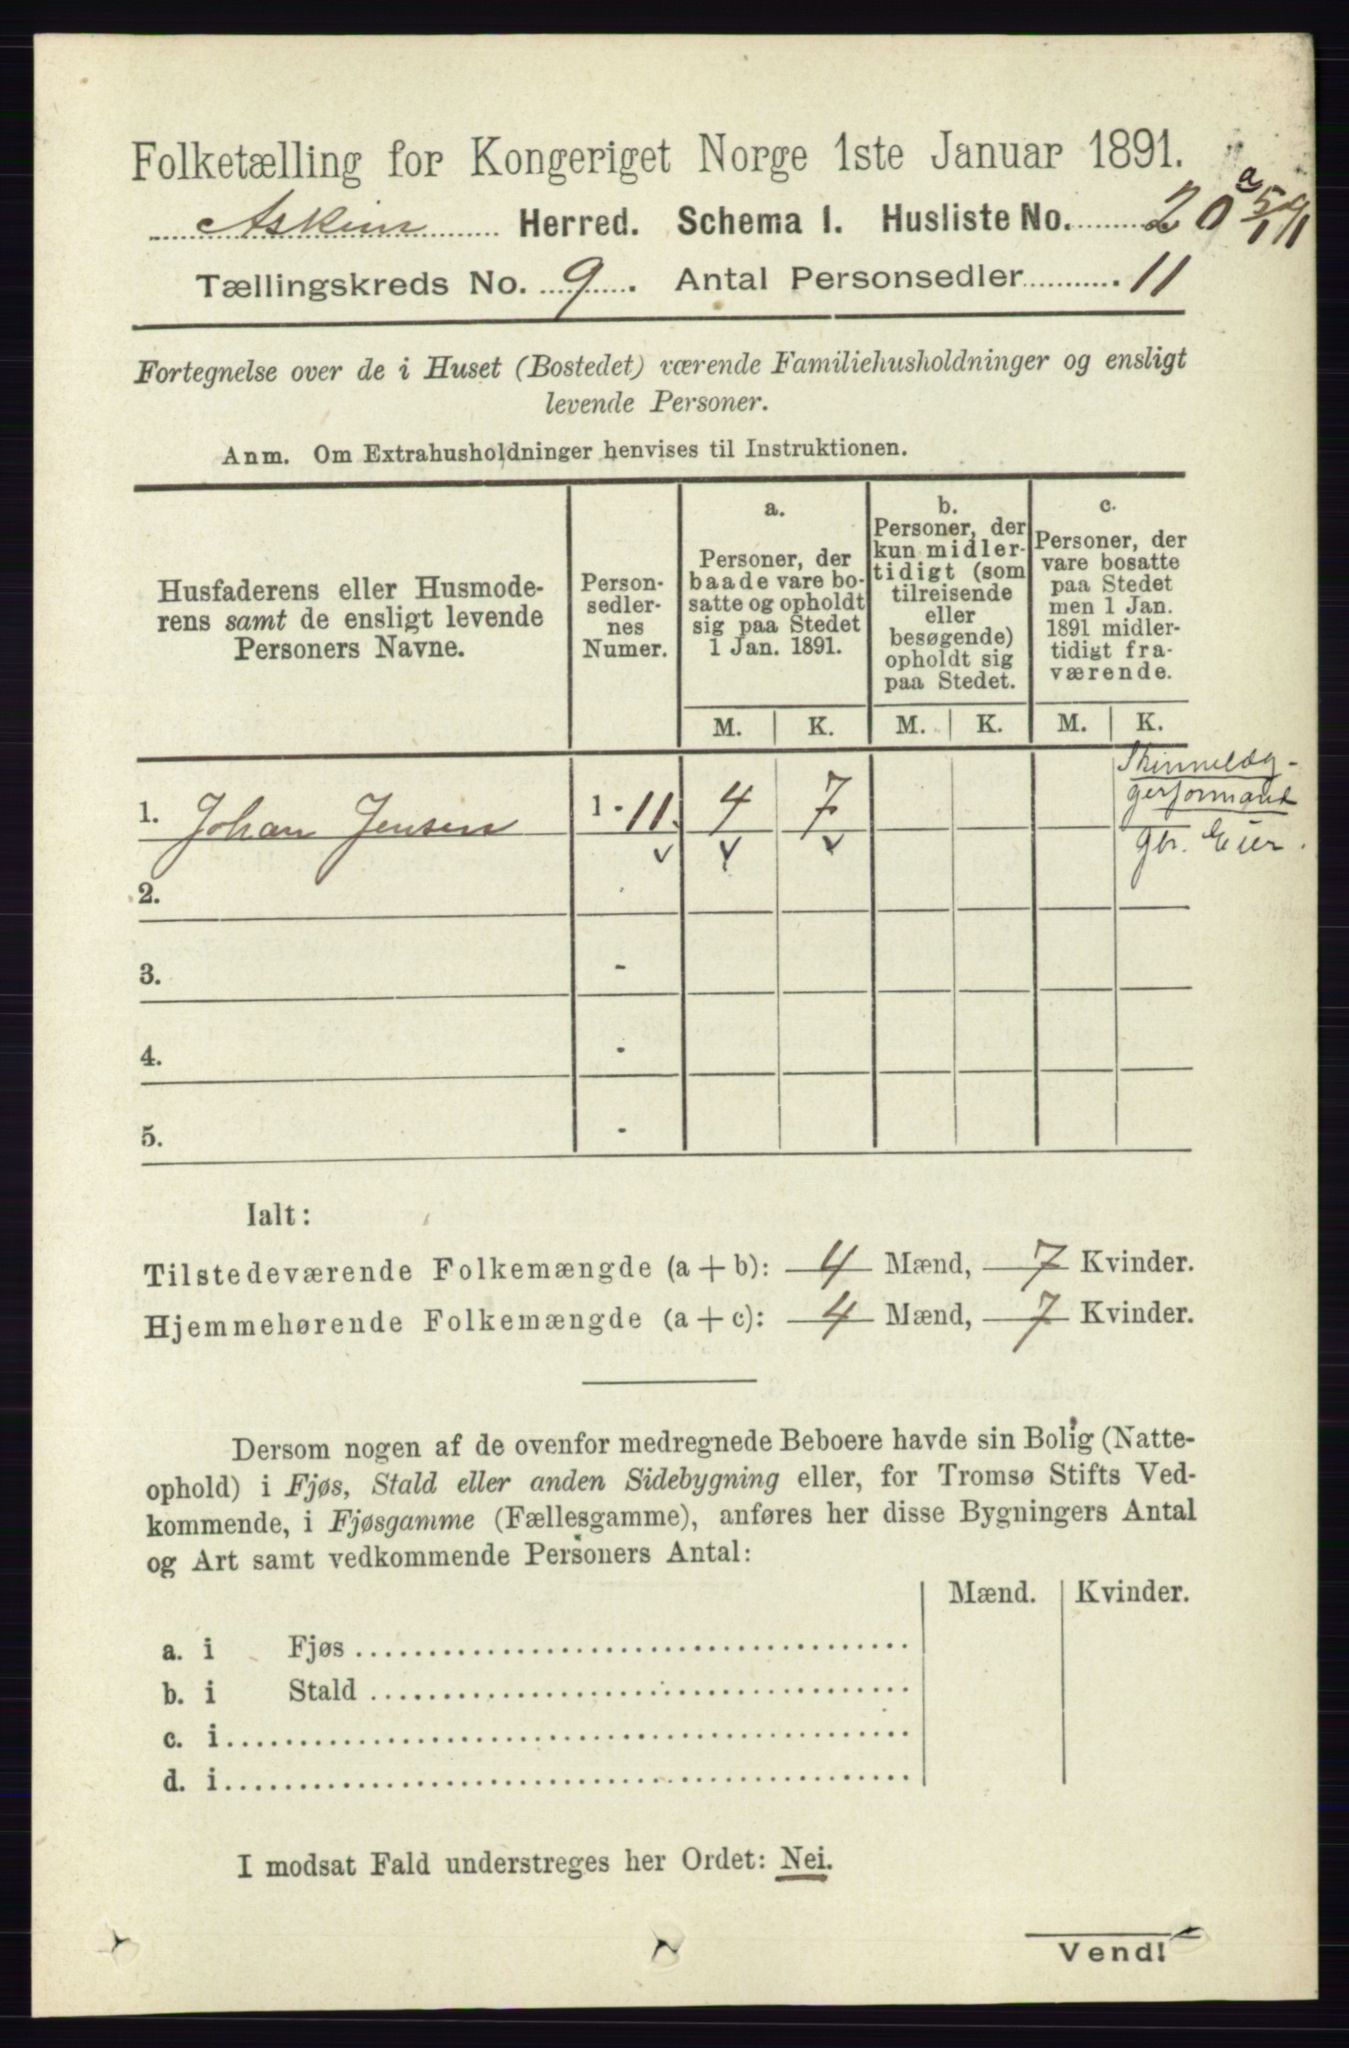 Folketælling for Kongeriget Norge 1ste Januar 1891.
Askim Herred. Schema 1. Husliste No. 20 a
Tællingskreds No. 9. Antal Personsedler 11
Fortegnelse over de i Huset (Bostedet) værende Familiehusholdninger og ensligt
levende Personer.
Anm. Om Extrahusholdninger henvises til Instruktionen.
Husfaderens eller Husmode-
rens samt de ensligt levende
Personers Navne.
Person-
sedler-
nes
Numer.
a.
Personer, der
baade vare bo-
satte og opholdt
sig paa Stedet
1 Jan. 1891.
b.
Personer, der
kun midler-
tidigt (som
tilreisende
eller
besøgende)
opholdt sig
paa Stedet.
c.
Personer, der
vare bosatte
paa Stedet
men 1 Jan.
1891 midler-
tidigt fra-
værende.
M. K. M. K. M. K.
1. Johan Jensen 1-11. 4 7
Skinnelæg-
gerformand
gbr. Eier.
2.
3. -
4. -
5. -
Ialt:
Tilstedeværende Folkemængde (a + b): 4 Mænd, 7 Kvinder.
Hjemmehørende Folkemængde (a + c): 4 Mænd, 7 Kvinder.
Dersom nogen af de ovenfor medregnede Beboere havde sin Bolig (Natte-
ophold) i Fjøs, Stald eller anden Sidebygning eller, for Tromsø Stifts Ved-
kommende, i Fjøsgamme (Fællesgamme), anføres her disse Bygningers Antal
og Art samt vedkommende Personers Antal:
Mænd. Kvinder.
a. i Fjøs
b. i Stald
c. i
d. i
I modsat Fald understreges her Ordet: Nei.
Vend!